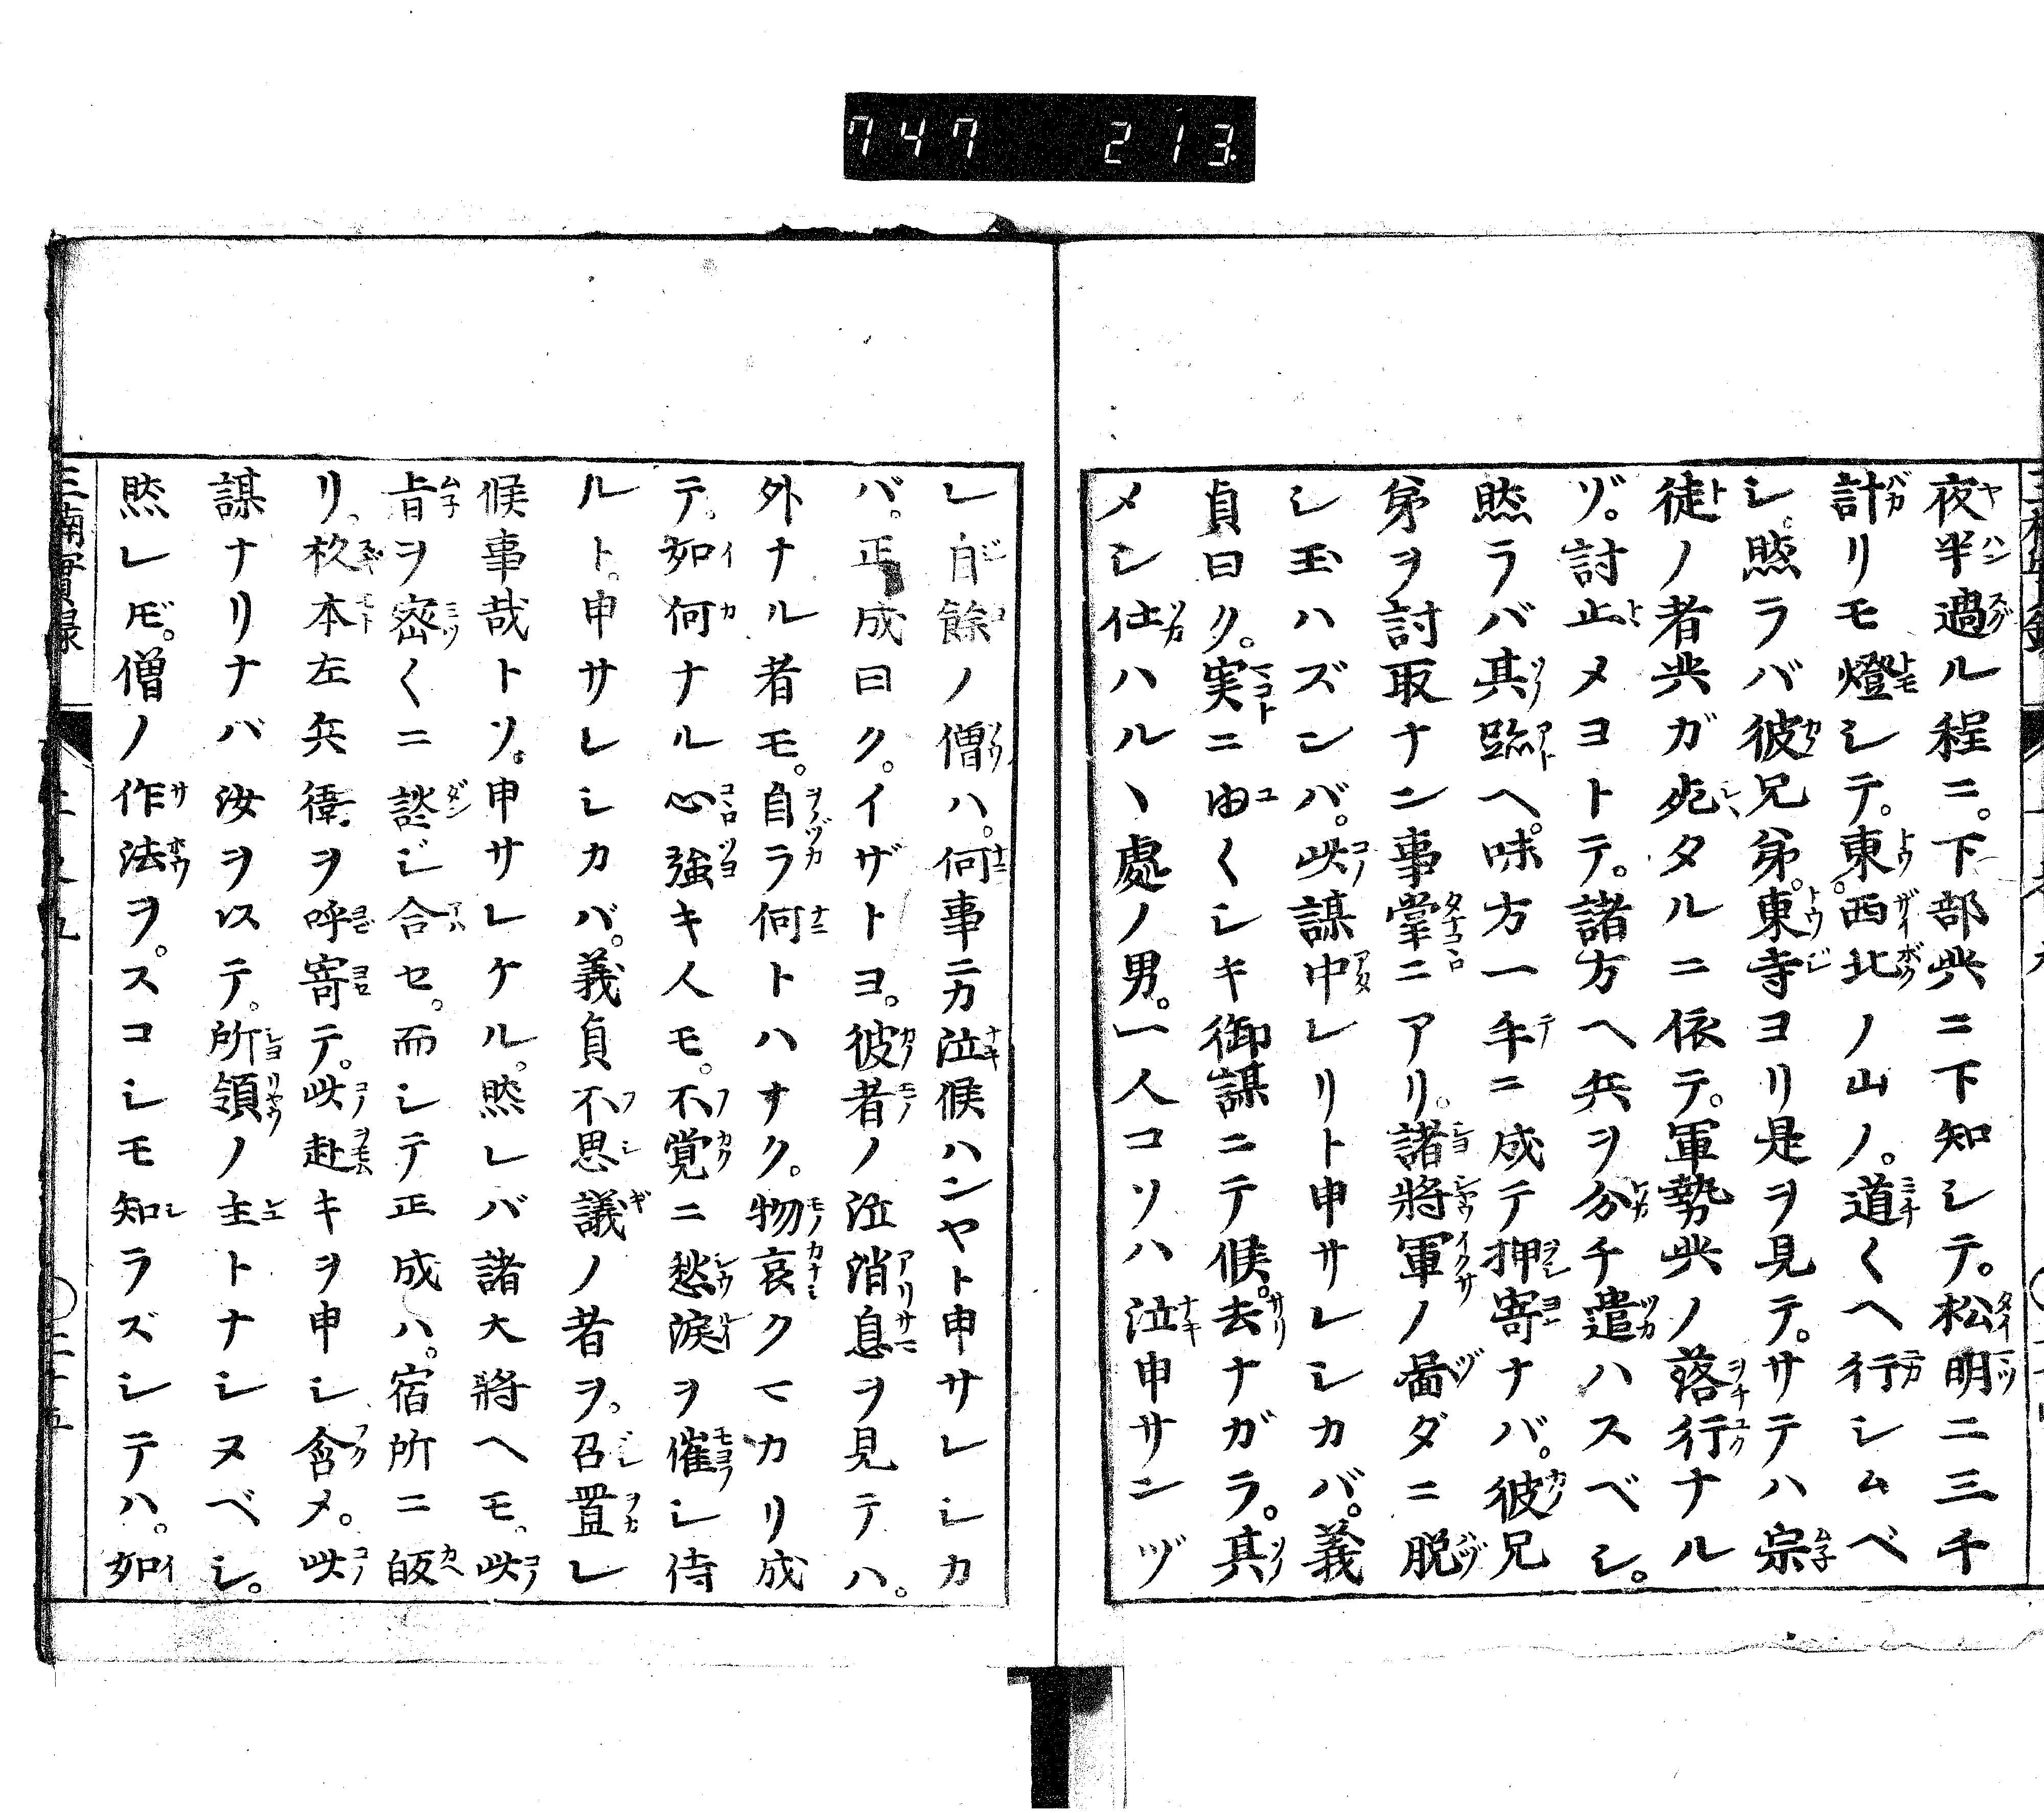 747 213.
夜半過ル程ニ。下部共ニ下知シテ。松明二三千
計リモ燈シテ。東。西北ノ山ノ。道〱ヘ行シムベ
シ。然ラバ彼兄弟。東寺ヨリ是ヲ見テ。サテハ宗
徒ノ者共ガ死タルニ依テ。軍勢共ノ落行ナル
ゾ。討止メヨトテ。諸方ヘ兵ヲ分チ遣ハスベシ。
然ラバ其跡ヘ。味方一手ニ成テ押寄ナバ。彼兄
弟ヲ討取ナン事掌ニアリ。諸將軍ノ啚ダニ脱
シ玉ハズンバ。此謀中レリト申サレシカバ。義
貞曰ク。実ニ由〱シキ御謀ニテ候。去ナガラ。其
メシ仕ハルヽ處ノ男。一人コソハ泣申サンヅ
レ自餘ノ僧ハ。何事ニカ泣候ハンヤト申サレシカ
バ。正成曰ク。イザトヨ。彼者ノ泣消息ヲ見テハ。
外ナル者モ。自ラ何トハナク。物哀クマカリ成
テ。如何ナル心強キ人モ。不覚ニ愁涙ヲ催シ侍
ルト。申サレシカバ。義貞不思議ノ者ヲ。召置レ
候事哉トソ。申サレケル。然レバ諸大將ヘモ。此
旨ヲ密〱ニ談ジ合セ。而シテ正成ハ。宿所ニ皈
リ。杦本左兵衛ヲ呼寄テ。此赴キヲ申シ含メ。此
謀ナリナバ汝ヲ以テ。所領ノ主トナシヌベシ。
然レ𪜈。僧ノ作法ヲ。スコシモ知ラズシテハ。如
三楠實録